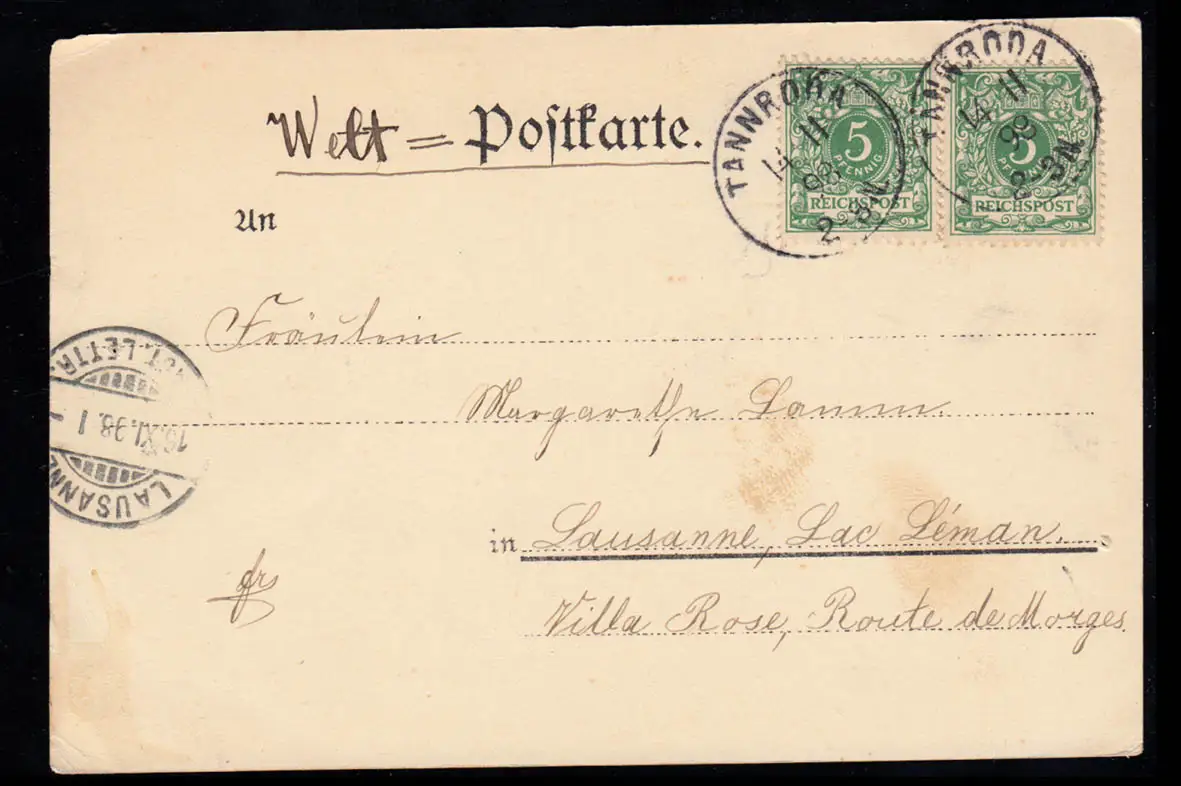 Welt = Postkarte.
TANNRODA
14 11
98
2-3N.
5
PFENNIG
REICHSPOST
TANNRODA
14 11
98
2-3N.
5
PFENNIG
REICHSPOST
An
Fräulein
Margarethe Lamm.
in Lausanne, Lac Léman.
Villa Rose, Route de Morges
frs
LETTR.
16.XI.98. 1
LAUSANNE